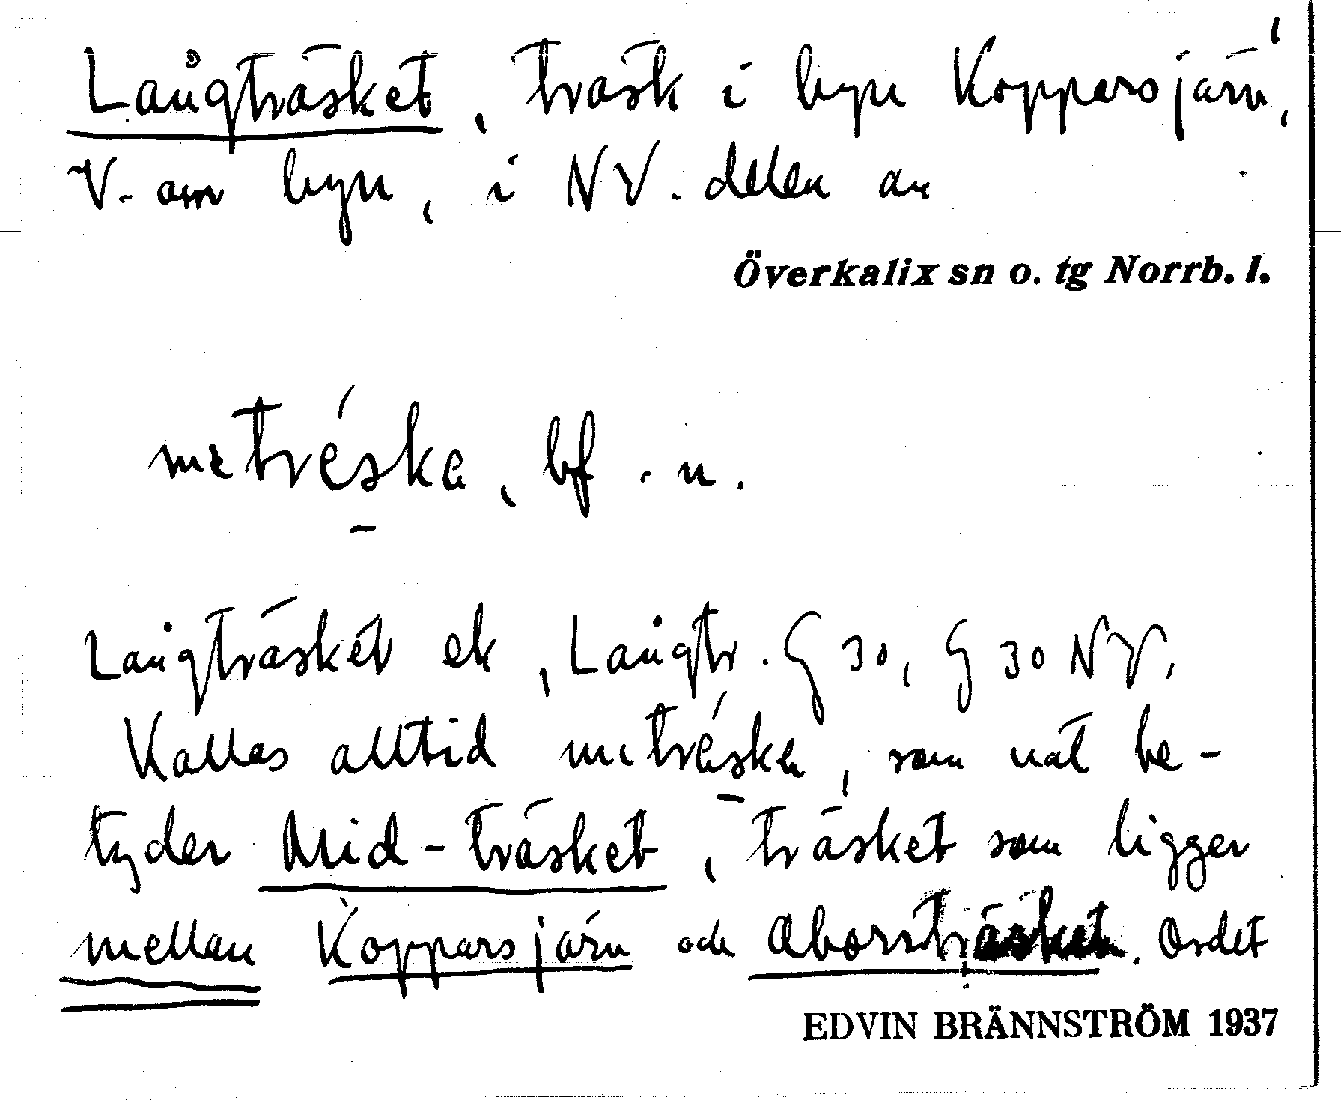 Långträsket, träsk i byn Kopparsjärv,
V. om byn, i NV. delen av
Överkalix sn o. tg Norrb. l.
metréska, bf. n.
Långträsket ek, Långtr. G 30, G 30 NV.
Kallas alltid metréska, som väl be-
tyder Mid-träsket, träsket som ligger
mellan Kopparsjärv och Aborrträsket. Ordet
EDVIN BRÄNNSTRÖM 1937